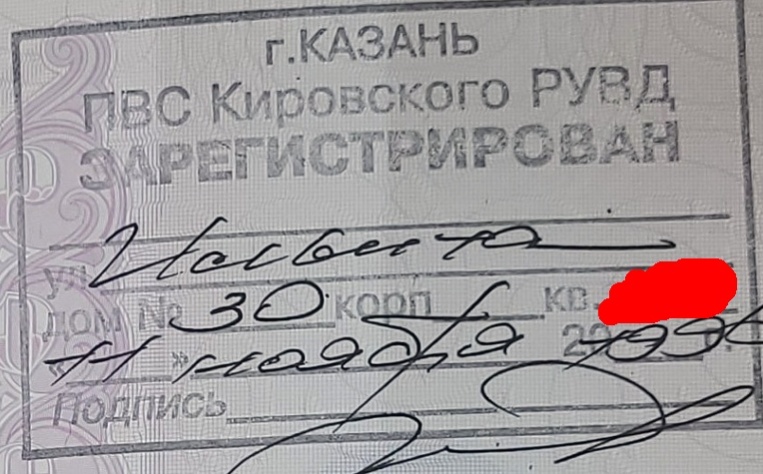 г.КАЗАНЬ
ПВС Кировского РУВД
ЗАРЕГИСТРИРОВАН
ул
дом № 30 корп кв.
«11» ноября 20
Подпись